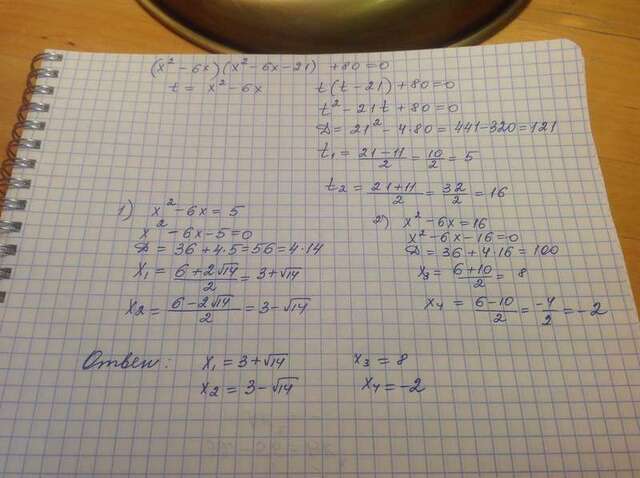 (x² - 6x)(x² - 6x - 21) + 80 = 0
t = x² - 6x
t(t - 21) + 80 = 0
t² - 21t + 80 = 0
D = 21² - 4·80 = 441 - 320 = 121
t₁ = (21 - 11)/2 = 10/2 = 5
t₂ = (21 + 11)/2 = 32/2 = 16
1) x² - 6x = 5
x² - 6x - 5 = 0
D = 36 + 4·5 = 56 = 4·14
x₁ = (6 + 2√14)/2 = 3 + √14
x₂ = (6 - 2√14)/2 = 3 - √14
2) x² - 6x = 16
x² - 6x - 16 = 0
D = 36 + 4·16 = 100
x₃ = (6 + 10)/2 = 8
x₄ = (6 - 10)/2 = -4/2 = -2
Ответ: x₁ = 3 + √14 x₃ = 8
x₂ = 3 - √14 x₄ = -2